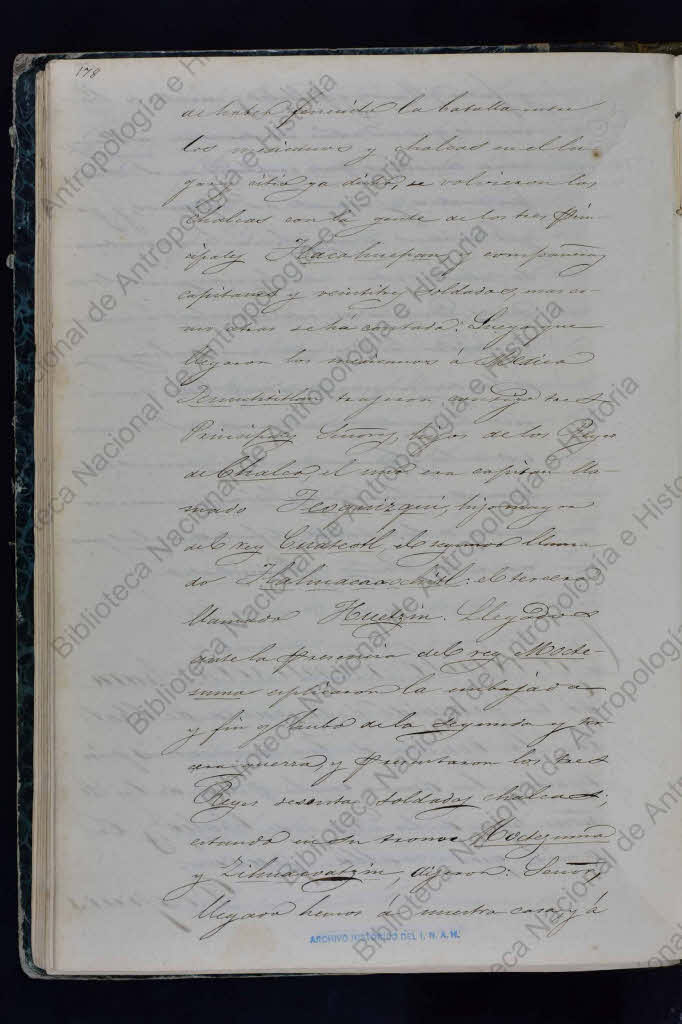 178
de haber fenecido la batalla entre
los mexicanos y chalcas en el lu-
gar y sitio ya dicho, se volvieron los
chalcas con la gente de los tres Prin-
cipales Tlacahuepan, y compañia,
capitanes y veintitres soldados, mas co-
mo atras se há contado: Luego que
llegaron los mexicanos á Mexico
Tenuchtitlan trajeron consigo tres
Principales Señores, hijos de los Reyes
de Chalco, el uno era capitan lla-
mado Teoquizqui, hijo mayor
del rey Cuateotl, el segundo llama-
do
el tercero
llamado Huetzin. Llegados
ante la presencia del rey Mocte-
zuma esplicaron la embajada
y fin q. hubo de la segunda y ter-
cera guerra, y presentaron los tres
Reyes sesenta soldados chalcas;
estando en su trono Moctezuma
y Zihuacoatzin, dijeron: Señor,
llegado hemos á nuestra casa, y á
ARCHIVO HISTORICO DEL I. N. A. H.
Biblioteca Nacional de Antropología e Historia